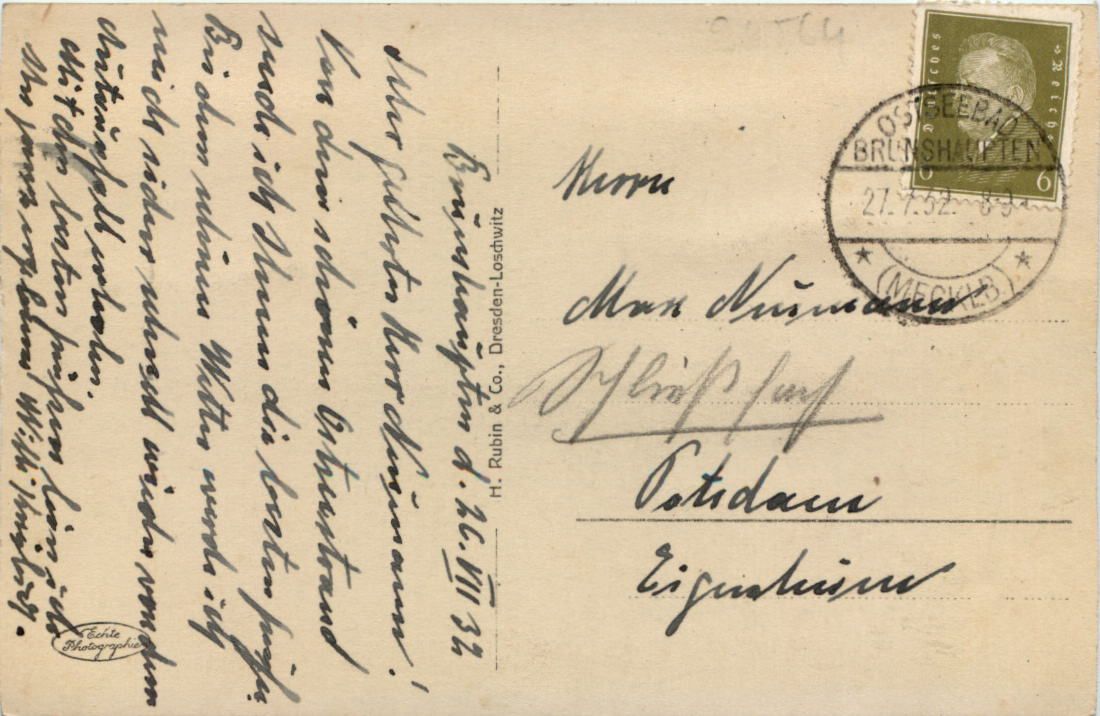 Brunshaupten d. 26.VII 32
Sehr geehrter Herr Neumann!
Von dem schönen Ostseestrand
sende ich Ihnen die besten Grüße.
Bei dem schönen Wetter werde ich
mich sicher schnell wieder von dem
erholen.
Mit den besten Grüßen bin ich
Ihr ganz ergebener Willi
Echte
Photographie
H. Rubin & Co., Dresden-Loschwitz
Deutsches Reich
6
OSTSEEBAD
BRUNSHAUPTEN
27.7.32. 8-9
(MECKLB)
Herrn
Max Neumann
Schließfach
Potsdam
Eigenheim